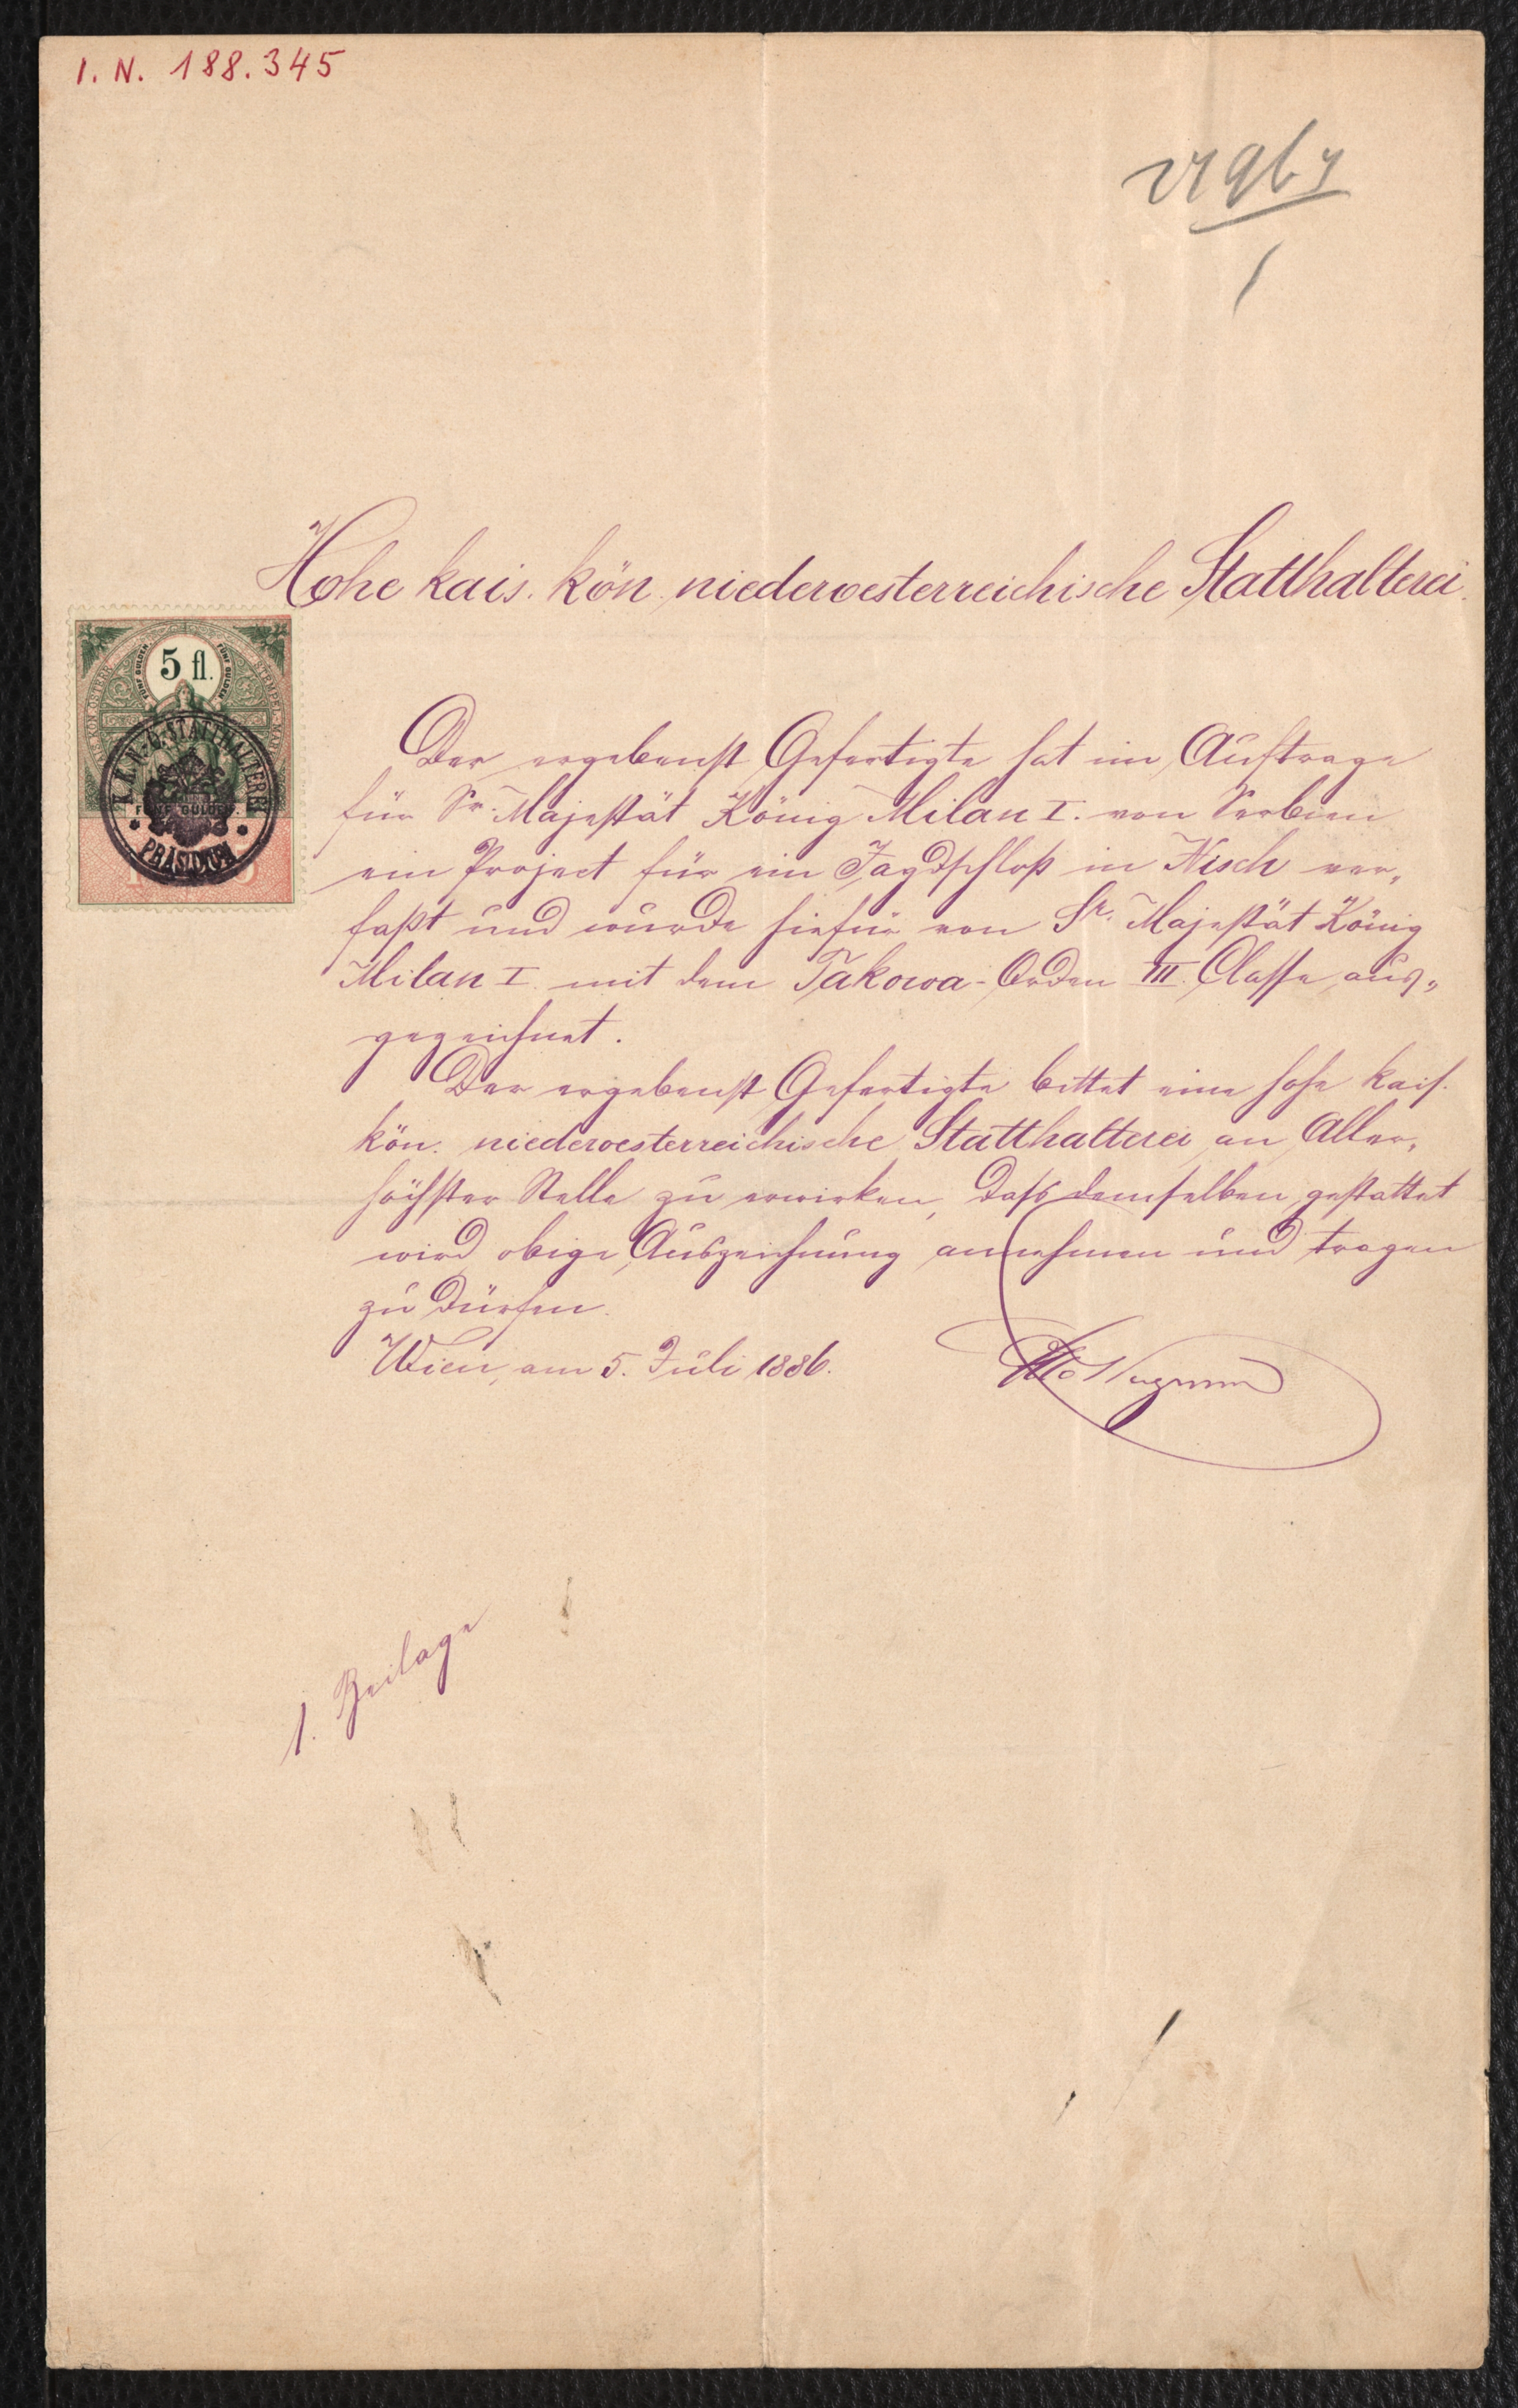 I. N. 188.345
Hohe kais. kön. niederoesterreichische Statthalterei.
5 fl.
FÜNF GULDEN
FÜNF GULDEN
K.K.N-Ö.STATTHALTEREI
PRÄSIDIUM
Der ergebenst Gefertigte hat im Auftrage
für Sr. Majestät König Milan I. von Serbien
ein Project für ein Jagdschloß in Nisch ver„
faßt und wurde hiefür von Sr. Majestät König
Milan I. mit dem Takowa-Orden III. Classe aus„
gezeichnet.
Der ergebenst Gefertigte bittet eine hohe kais.
kön. niederoesterreichische Statthalterei an Aller„
höchster Stelle zu erwirken, dass demselben gestattet
wird obige Auszeichnung annehmen und tragen
zu dürfen.
Wien, am 5. Juli 1886.
Otto Wagner
1. Beilage